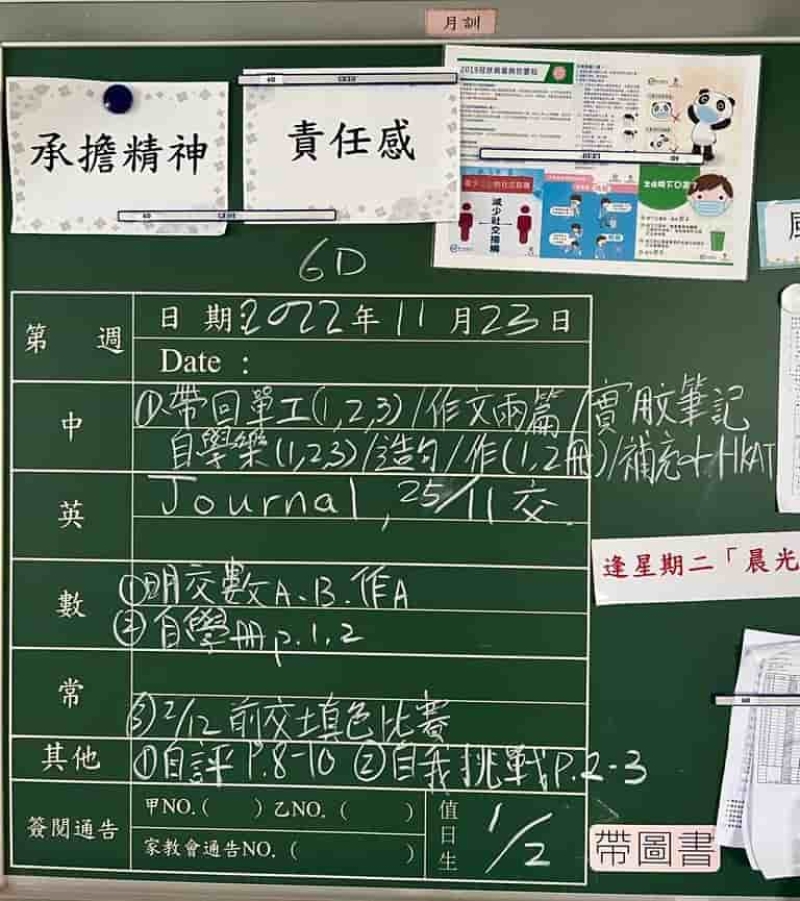 月訓
承擔精神
責任感
減少社交接觸
6D
第 週
日 期:2022年 11 月 23 日
Date :
中
①帶回單工(1,2,3)/作文兩篇/實用文筆記
自學樂(1,2,3)/造句/作(1,2冊)/補充+HKAT
英
Journal, 25/11 交.
數
①明交數A、B、作A
②自學冊p.1,2
常
③2/12前交填色比賽
其他
①自評P.8-10 ②自我挑戰P.2-3
簽閱通告
甲NO.( ) 乙NO.( )
家教會通告NO.( )
值日生
1/2
逢星期二「晨光
帶圖書